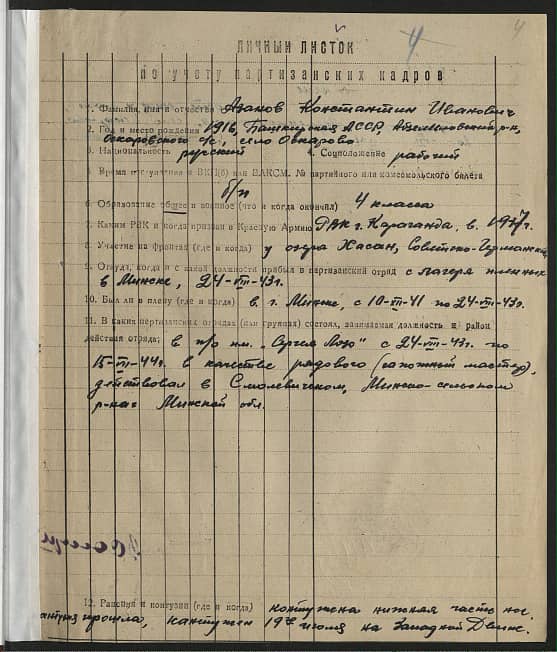 4
4
ЛИЧНЫЙ ЛИСТОК
по учету партизанских кадров
1. Фамилия, имя и отчество Азанов Константин Иванович
2. Год и место рождения 1916, Башкирская АССР, Абзелиловский р-н,
Аскаровского с/с, село Аскарово
3. Национальность русский 4. Соцположение рабочий
5. Время вступления в ВКП(б) или ВЛКСМ. № партийного или комсомольского билета
б/п
6. Образование общее и военное (что и когда окончил) 4 класса
7. Каким РВК и когда призван в Красную Армию РВК г. Караганда, в 1937г.
8. Участие на фронтах (где и когда) у озера Хасан, Советско-Германский
9. Откуда, когда и с какой должности прибыл в партизанский отряд с лагеря пленных
в Минске, 24-VIII-43г.
10. Был ли в плену (где и когда) в г. Минске, с 10-VII-41 по 24-VIII-43г.
11. В каких партизанских отрядах (или группах) состоял, занимаемая должность и район
действия отряда: в п/о им. "Сергея Лазо" с 24-VIII-43г. по
15-VII-44г. в качестве рядового (сапожный мастер),
действовал в Смолевичском, Минско-сельском
р-нах Минской обл.
12. Ранения и контузии (где и когда) контужена нижняя часть
прошла, контужен 19 июля на Западной Двине.